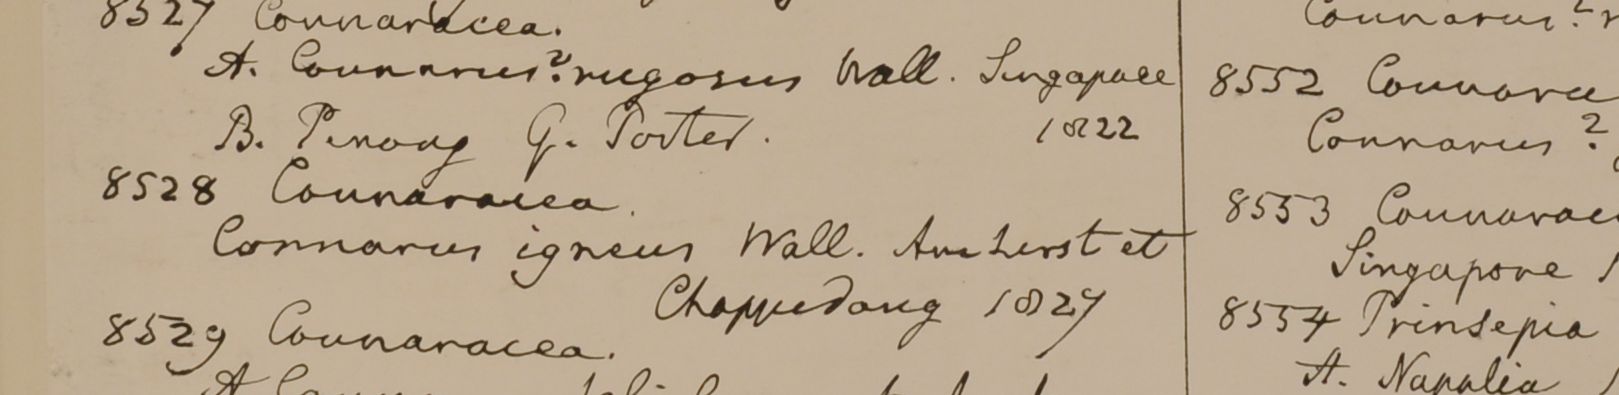 8527 Connaracea.
A. Connarus? rugosus Wall. Singapore
B. Penang G. Porter. 1822
8528 Connaracea.
Connarus igneus Wall. Amherst et
Chappedong 1827
8529 Connaracea.
Connarus?
8552 Connara
Connarus?
8553 Connarac
Singapore
8554 Prinsepia
A. Napalia